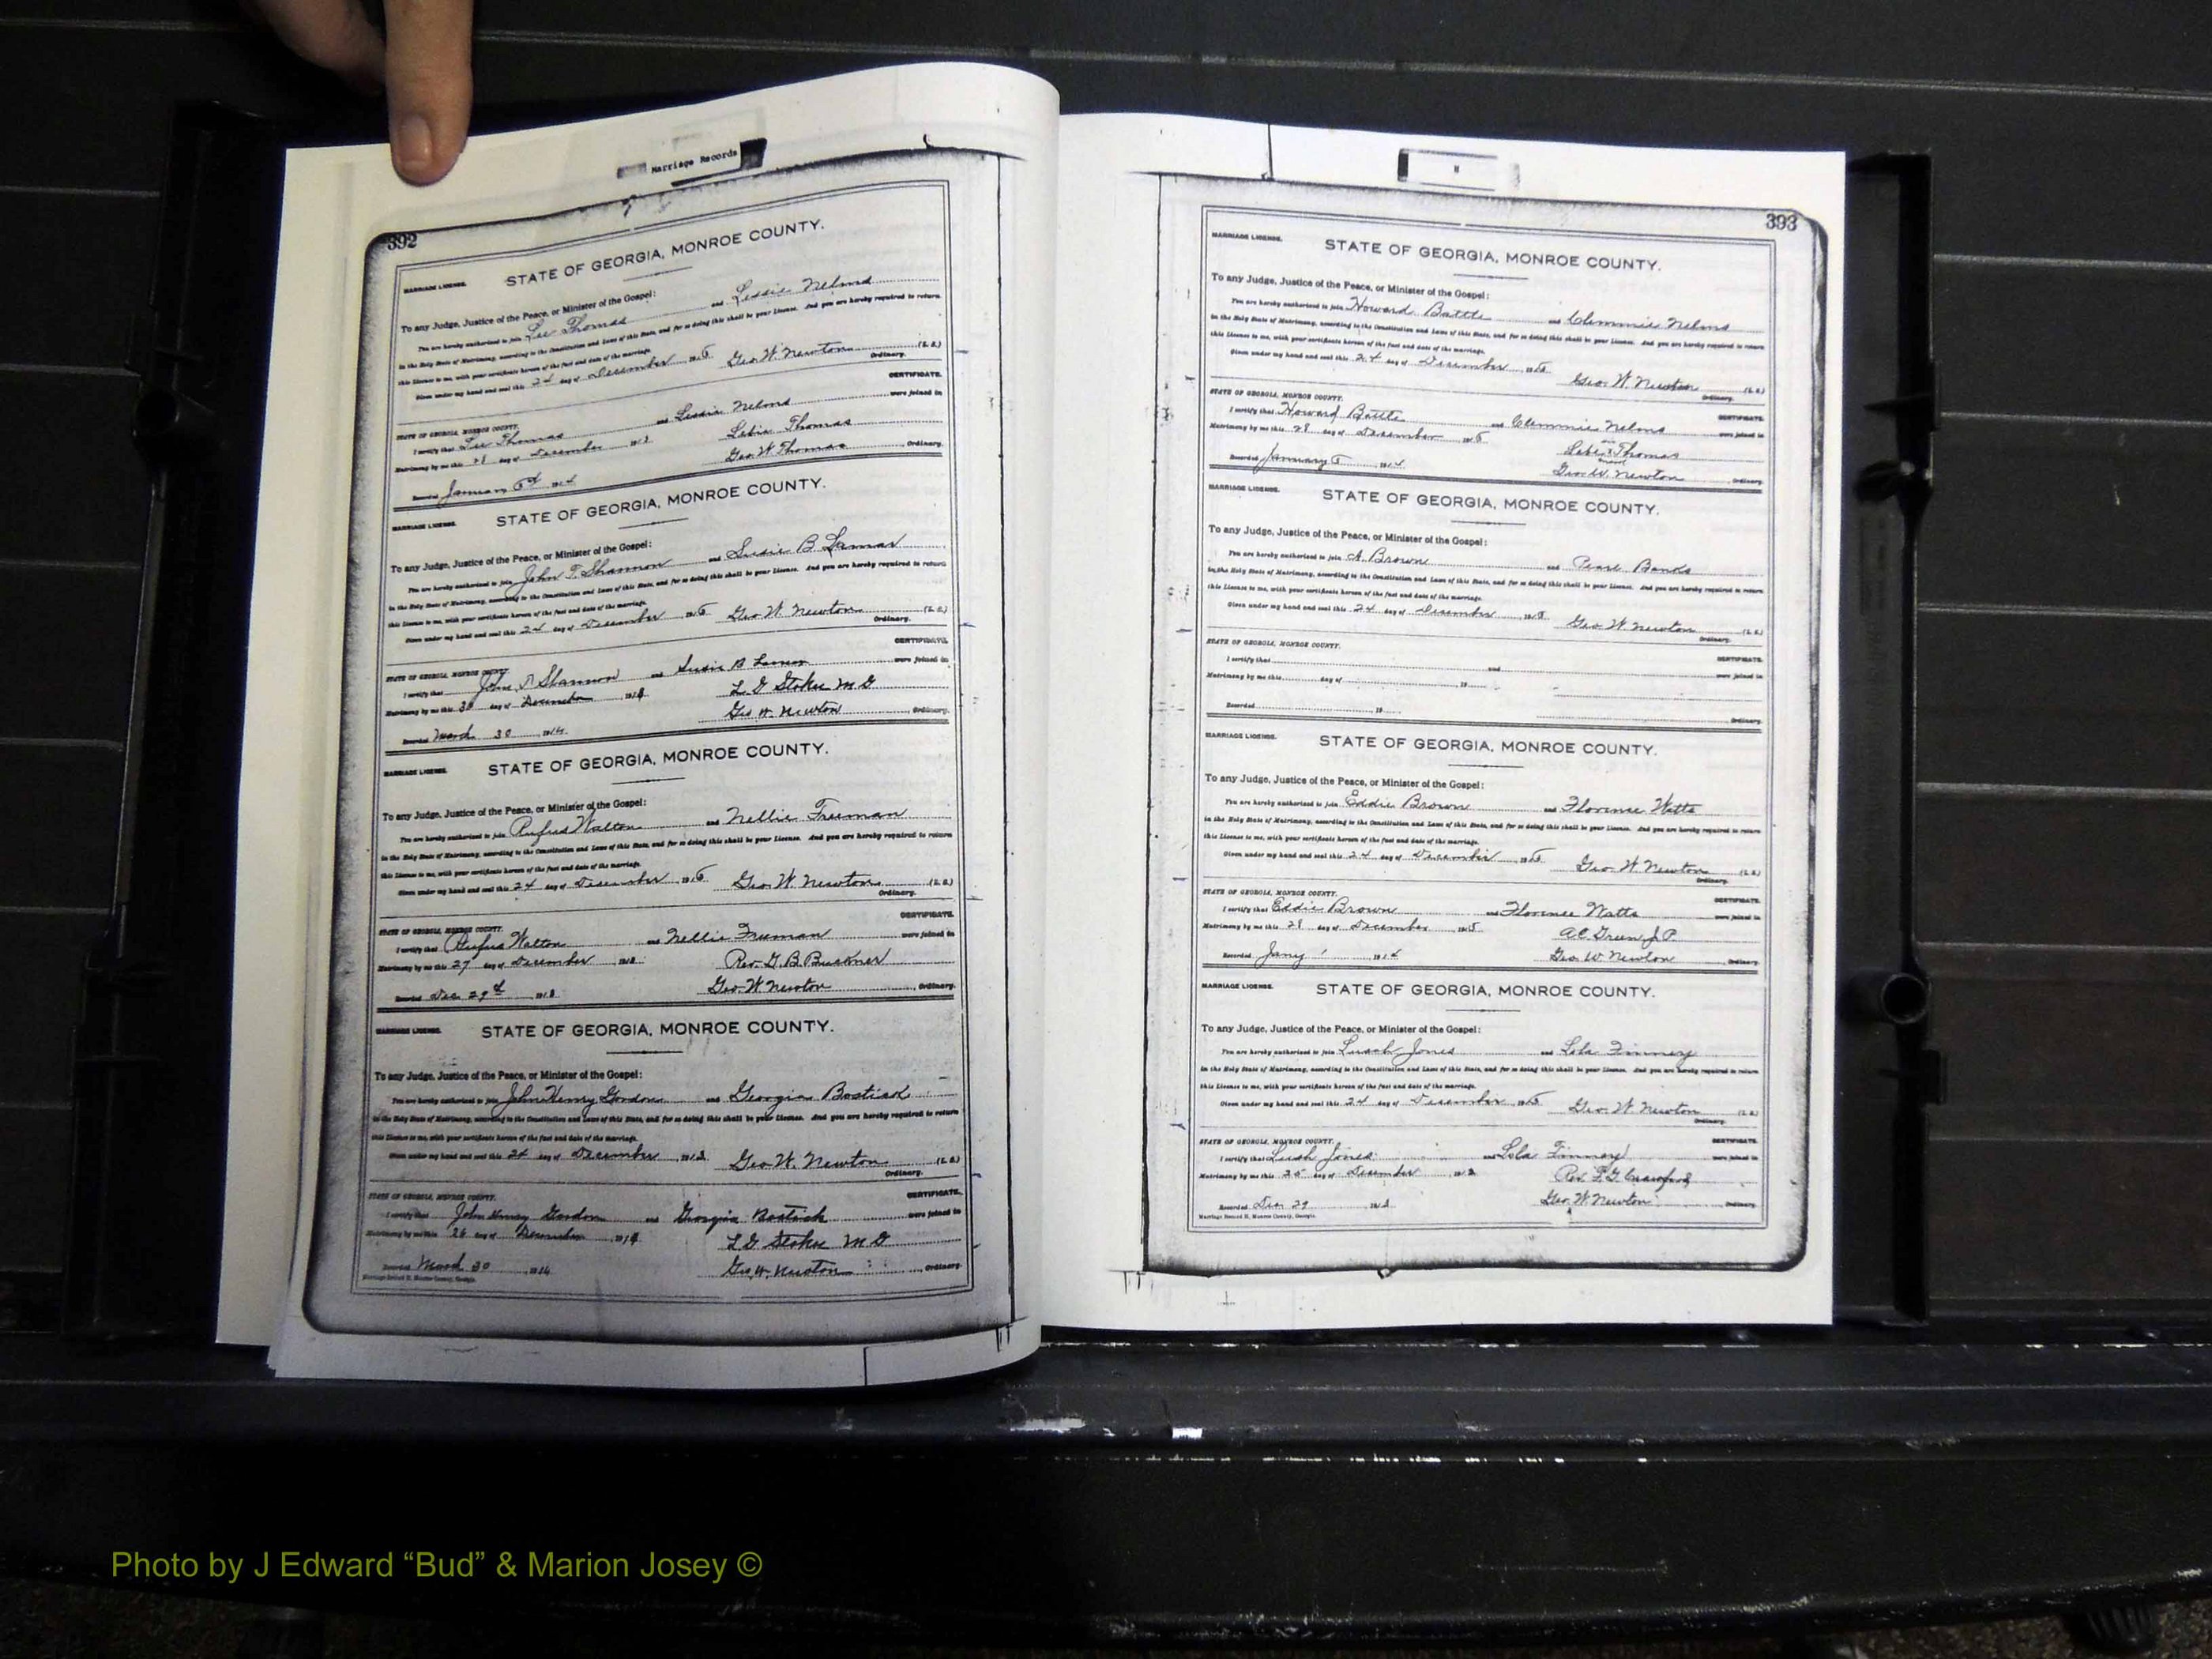 Marriage Records
392
MARRIAGE LICENSE.
STATE OF GEORGIA, MONROE COUNTY.
To any Judge, Justice of the Peace, or Minister of the Gospel:
You are hereby authorized to join Lee Thomas and Lessie Nelms
in the Holy State of Matrimony, according to the Constitution and Laws of this State, and for so doing this shall be your License. And you are hereby required to return
this License to me, with your certificate hereon of the fact and date of the marriage.
Given under my hand and seal this 24 day of December Geo. W. Newton (L.S.)
Ordinary.
STATE OF GEORGIA, MONROE COUNTY. CERTIFICATE.
I certify that Lee Thomas and Lessie Nelms were joined in
Matrimony by me this 28 day of December 1913 Thomas
Recorded January 1914 Geo W Thomas Ordinary.
MARRIAGE LICENSE.
STATE OF GEORGIA, MONROE COUNTY.
To any Judge, Justice of the Peace, or Minister of the Gospel:
You are hereby authorized to join John T. Shannon and Susie B. Lamar
in the Holy State of Matrimony, according to the Constitution and Laws of this State, and for so doing this shall be your License. And you are hereby required to return
this License to me, with your certificate hereon of the fact and date of the marriage.
Given under my hand and seal this 24 day of December Geo W. Newton (L.S.)
Ordinary.
STATE OF GEORGIA, MONROE COUNTY. CERTIFICATE.
I certify that John T Shannon and Susie B Lamar were joined in
Matrimony by me this 30 day of December L G Stokes M G
Recorded March 30 1914 Geo W. Newton Ordinary.
MARRIAGE LICENSE.
STATE OF GEORGIA, MONROE COUNTY.
To any Judge, Justice of the Peace, or Minister of the Gospel:
You are hereby authorized to join Rufus Walton and Nellie Freeman
in the Holy State of Matrimony, according to the Constitution and Laws of this State, and for so doing this shall be your License. And you are hereby required to return
this License to me, with your certificate hereon of the fact and date of the marriage.
Given under my hand and seal this 24 day of December Geo. W. Newton (L.S.)
Ordinary.
STATE OF GEORGIA, MONROE COUNTY. CERTIFICATE.
I certify that Rufus Walton and Nellie Freeman were joined in
Matrimony by me this 27 day of December 1913 Rev. G. B. Buckner
Recorded Dec 29 1913 Geo. W Newton Ordinary.
MARRIAGE LICENSE.
STATE OF GEORGIA, MONROE COUNTY.
To any Judge, Justice of the Peace, or Minister of the Gospel:
You are hereby authorized to join John Henry Gordon and Georgia Bostick
in the Holy State of Matrimony, according to the Constitution and Laws of this State, and for so doing this shall be your License. And you are hereby required to return
this License to me, with your certificate hereon of the fact and date of the marriage.
Given under my hand and seal this 24 day of December 1913 Geo W. Newton (L.S.)
Ordinary.
STATE OF GEORGIA, MONROE COUNTY. CERTIFICATE.
I certify that John Henry Gordon and Georgia Bostick were joined in
Matrimony by me this 26 day of December L G Stokes M G
Recorded March 30 1914 Geo. W. Newton Ordinary.
Marriage Record H, Monroe County, Georgia.
H
393
MARRIAGE LICENSE.
STATE OF GEORGIA, MONROE COUNTY.
To any Judge, Justice of the Peace, or Minister of the Gospel:
You are hereby authorized to join Howard Battle and Clemmie Nelms
in the Holy State of Matrimony, according to the Constitution and Laws of this State, and for so doing this shall be your License. And you are hereby required to return
this License to me, with your certificate hereon of the fact and date of the marriage.
Given under my hand and seal this 24 day of December Geo. W. Newton (L.S.)
Ordinary.
STATE OF GEORGIA, MONROE COUNTY. CERTIFICATE.
I certify that Howard Battle and Clemmie Nelms were joined in
Matrimony by me this 28 day of December Thomas
Recorded January 1914 Geo. W. Newton Ordinary.
MARRIAGE LICENSE.
STATE OF GEORGIA, MONROE COUNTY.
To any Judge, Justice of the Peace, or Minister of the Gospel:
You are hereby authorized to join A. Brown and Pearl Bands
in the Holy State of Matrimony, according to the Constitution and Laws of this State, and for so doing this shall be your License. And you are hereby required to return
this License to me, with your certificate hereon of the fact and date of the marriage.
Given under my hand and seal this 24 day of December Geo. W. Newton (L.S.)
Ordinary.
STATE OF GEORGIA, MONROE COUNTY. CERTIFICATE.
I certify that and were joined in
Matrimony by me this day of , 19
Recorded 19 Ordinary.
MARRIAGE LICENSE.
STATE OF GEORGIA, MONROE COUNTY.
To any Judge, Justice of the Peace, or Minister of the Gospel:
You are hereby authorized to join Eddie Brown and Florence Watts
in the Holy State of Matrimony, according to the Constitution and Laws of this State, and for so doing this shall be your License. And you are hereby required to return
this License to me, with your certificate hereon of the fact and date of the marriage.
Given under my hand and seal this 24 day of December Geo. W. Newton (L.S.)
Ordinary.
STATE OF GEORGIA, MONROE COUNTY. CERTIFICATE.
I certify that Eddie Brown and Florence Watts were joined in
Matrimony by me this 28 day of December A C Green J P
Recorded Jany 1 1914 Geo. W. Newton Ordinary.
MARRIAGE LICENSE.
STATE OF GEORGIA, MONROE COUNTY.
To any Judge, Justice of the Peace, or Minister of the Gospel:
You are hereby authorized to join Jones and Lola Finney
in the Holy State of Matrimony, according to the Constitution and Laws of this State, and for so doing this shall be your License. And you are hereby required to return
this License to me, with your certificate hereon of the fact and date of the marriage.
Given under my hand and seal this 24 day of December Geo. W. Newton (L.S.)
Ordinary.
STATE OF GEORGIA, MONROE COUNTY. CERTIFICATE.
I certify that Lush Jones and Lola Finney were joined in
Matrimony by me this 25 day of December 1913 Rev. Crawford
Recorded Dec 29 1913 Geo. W. Newton Ordinary.
Marriage Record H, Monroe County, Georgia.
Photo by J Edward “Bud” & Marion Josey ©